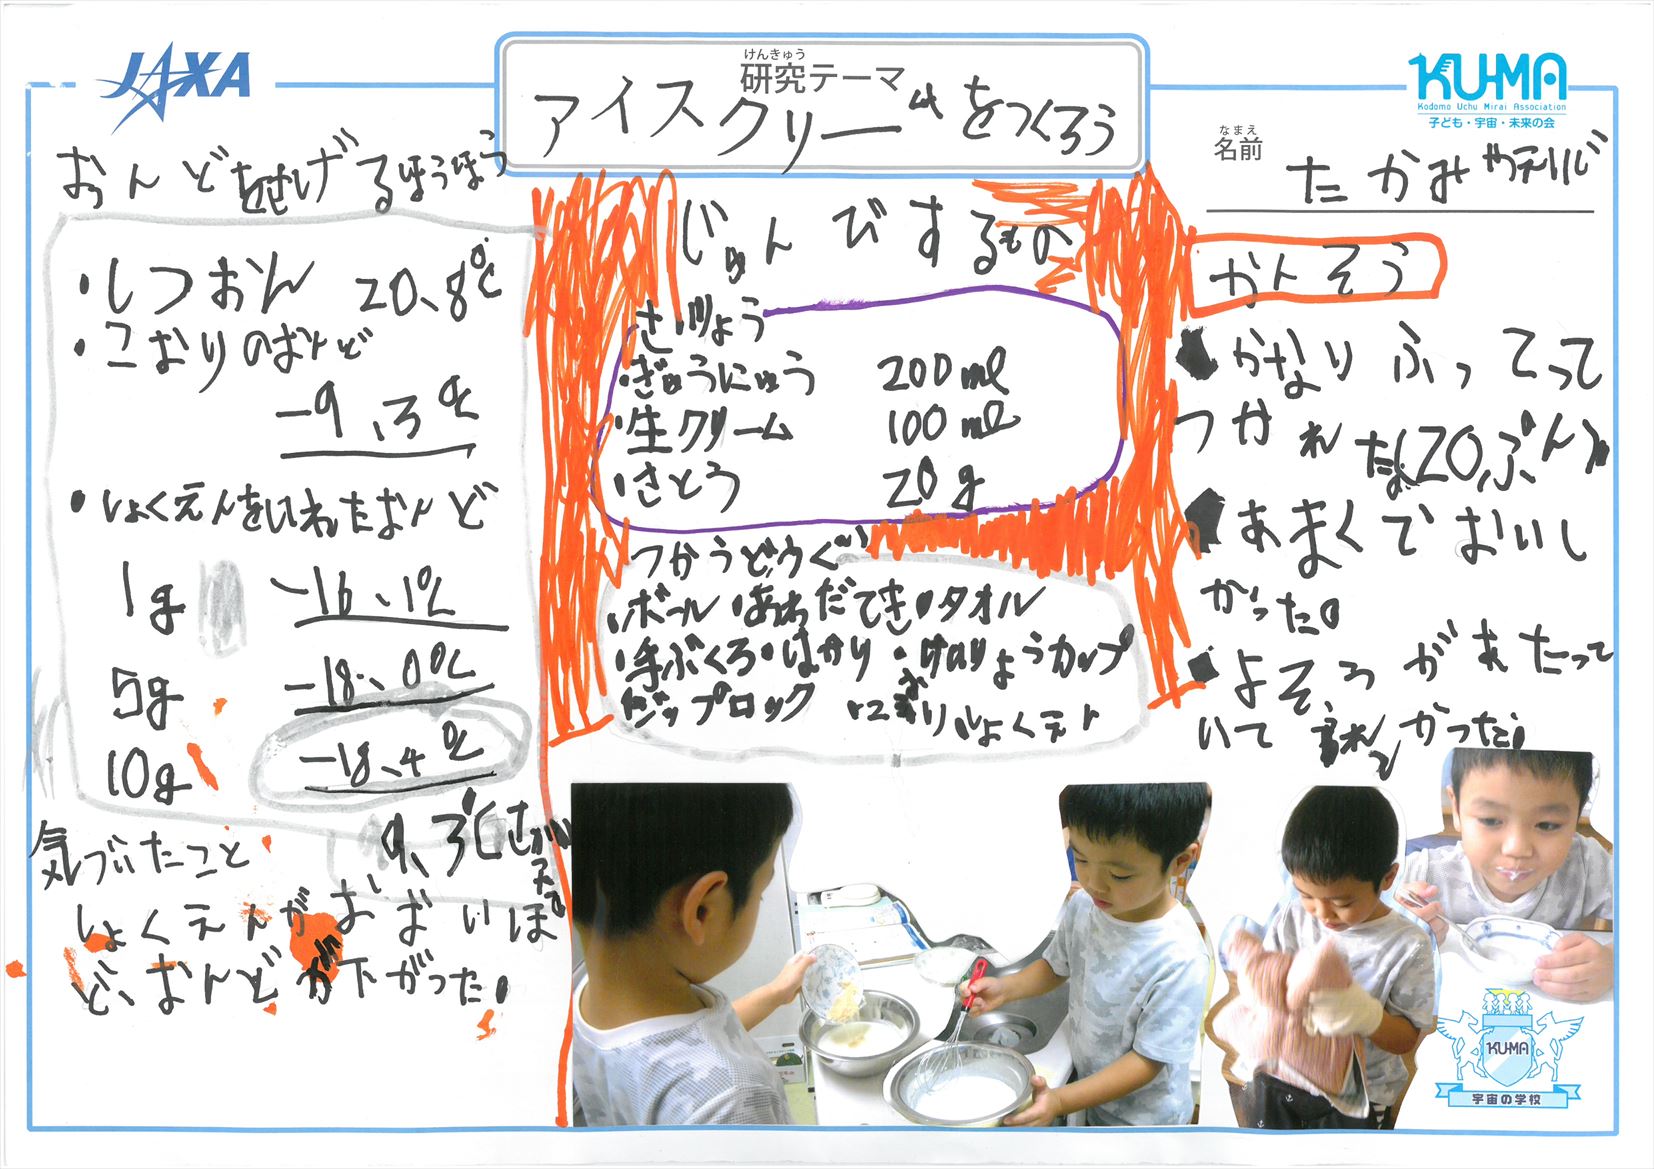 JAXA
けんきゅう
研究テーマ
アイスクリームをつくろう
KU-MA
Kodomo Uchu Mirai Association
子ども・宇宙・未来の会
なまえ
名前
おんどをさげるほうほう
・しつおん 20.8℃
・こおりのおんど
-9.3℃
・しょくえんをいれたおんど
1g -16.1℃
5g -18.0℃
10g -18.4℃
9.3℃さがった
気づいたこと
しょくえんがおおいほ
ど、おんどが下がった。
じゅんびするもの
ざいりょう
・ぎゅうにゅう 200ml
・生クリーム 100ml
・さとう 20g
つかうどうぐ
・ボール ・あわだてき ・タオル
・手ぶくろ ・はかり ・けいりょうカップ
・ジップロック ・こおり ・しょくえん
かんそう
かなりふってって
つかれた(20ぷん)
あまくておいし
かった。
よそうがあたって
いて うれしかった。
KU-MA
宇宙の学校